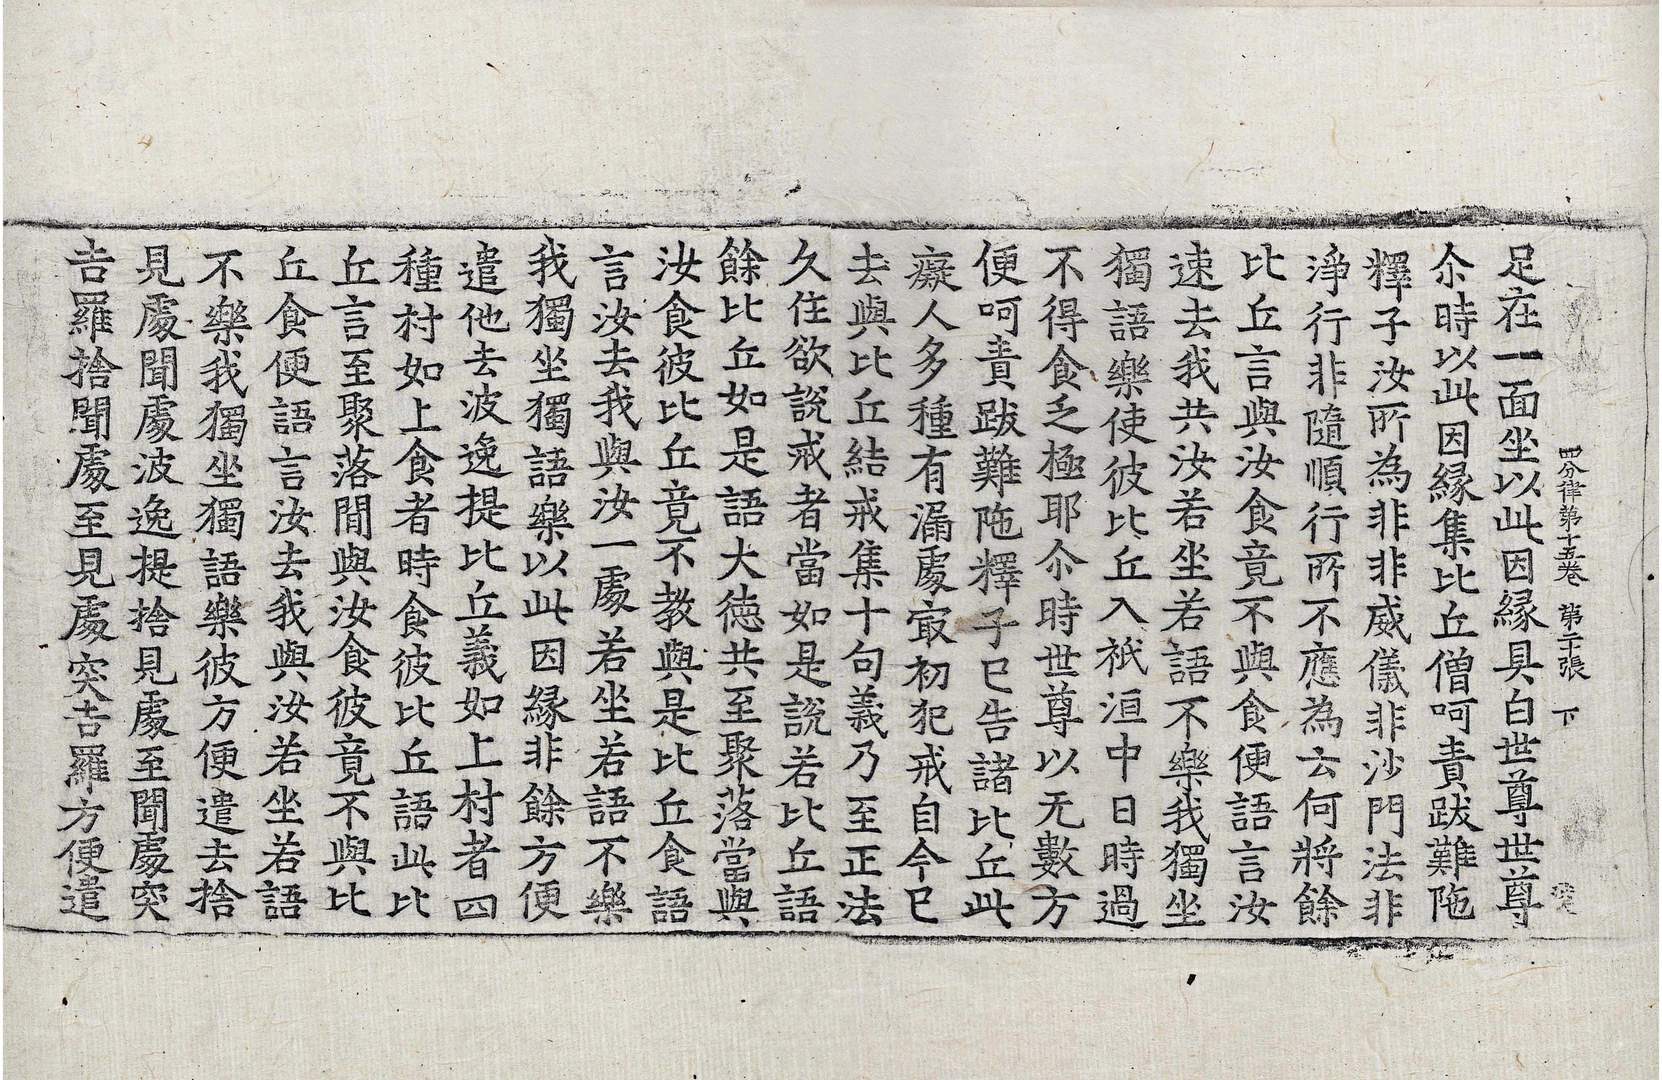 四分律第十五卷 第二十張 下
足在一面坐以此因緣具白世尊世尊
尒時以此因緣集比丘僧呵責跋難陁
釋子汝所為非非威儀非沙門法非
淨行非隨順行所不應為云何將餘
比丘言與汝食竟不與食便語言汝
速去我共汝若坐若語不樂我獨坐
獨語樂使彼比丘入祇洹中日時過
不得食乏極耶尒時世尊以无數方
便呵責跋難陁釋子已告諸比丘此
癡人多種有漏處㝡初犯戒自今已
去與比丘結戒集十句義乃至正法
久住欲說戒者當如是說若比丘語
餘比丘如是語大德共至聚落當與
汝食彼比丘竟不教與是比丘食語
言汝去我與汝一處若坐若語不樂
我獨坐獨語樂以此因緣非餘方便
遣他去波逸提比丘義如上村者四
種村如上食者時食彼比丘語此比
丘言至聚落閒與汝食彼竟不與比
丘食便語言汝去我與汝若坐若語
不樂我獨坐獨語樂彼方便遣去捨
見處聞處波逸提捨見處至聞處突
吉羅捨聞處至見處突吉羅方便遣